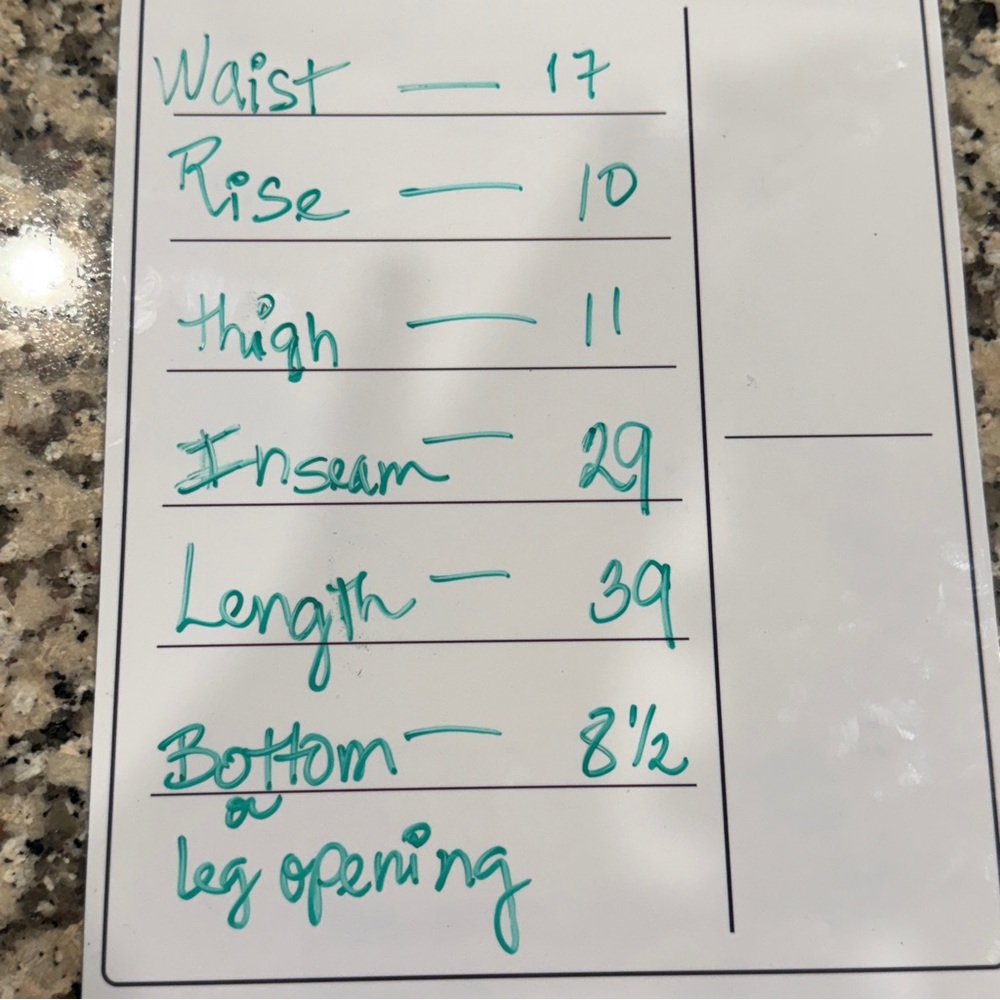 Waist — 17
Rise — 10
thigh — 11
Inseam — 29
Length — 39
Bottom — 8 1/2
or
leg opening